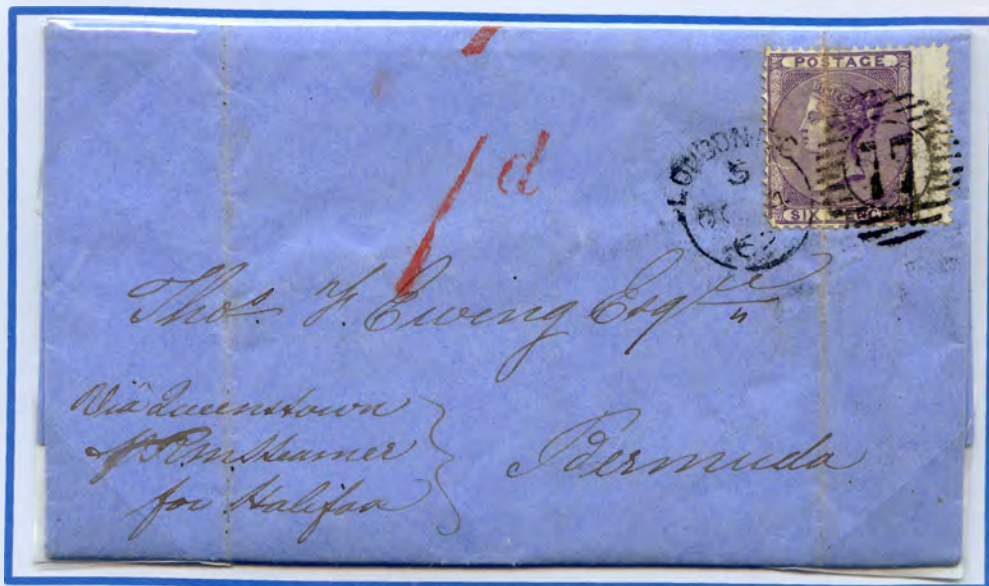 POSTAGE
SIX PENCE
LONDON
5
77
1 d
Thos. F. Ewing Esqre
Via Queenstown
p R M Steamer
for Halifax
Bermuda